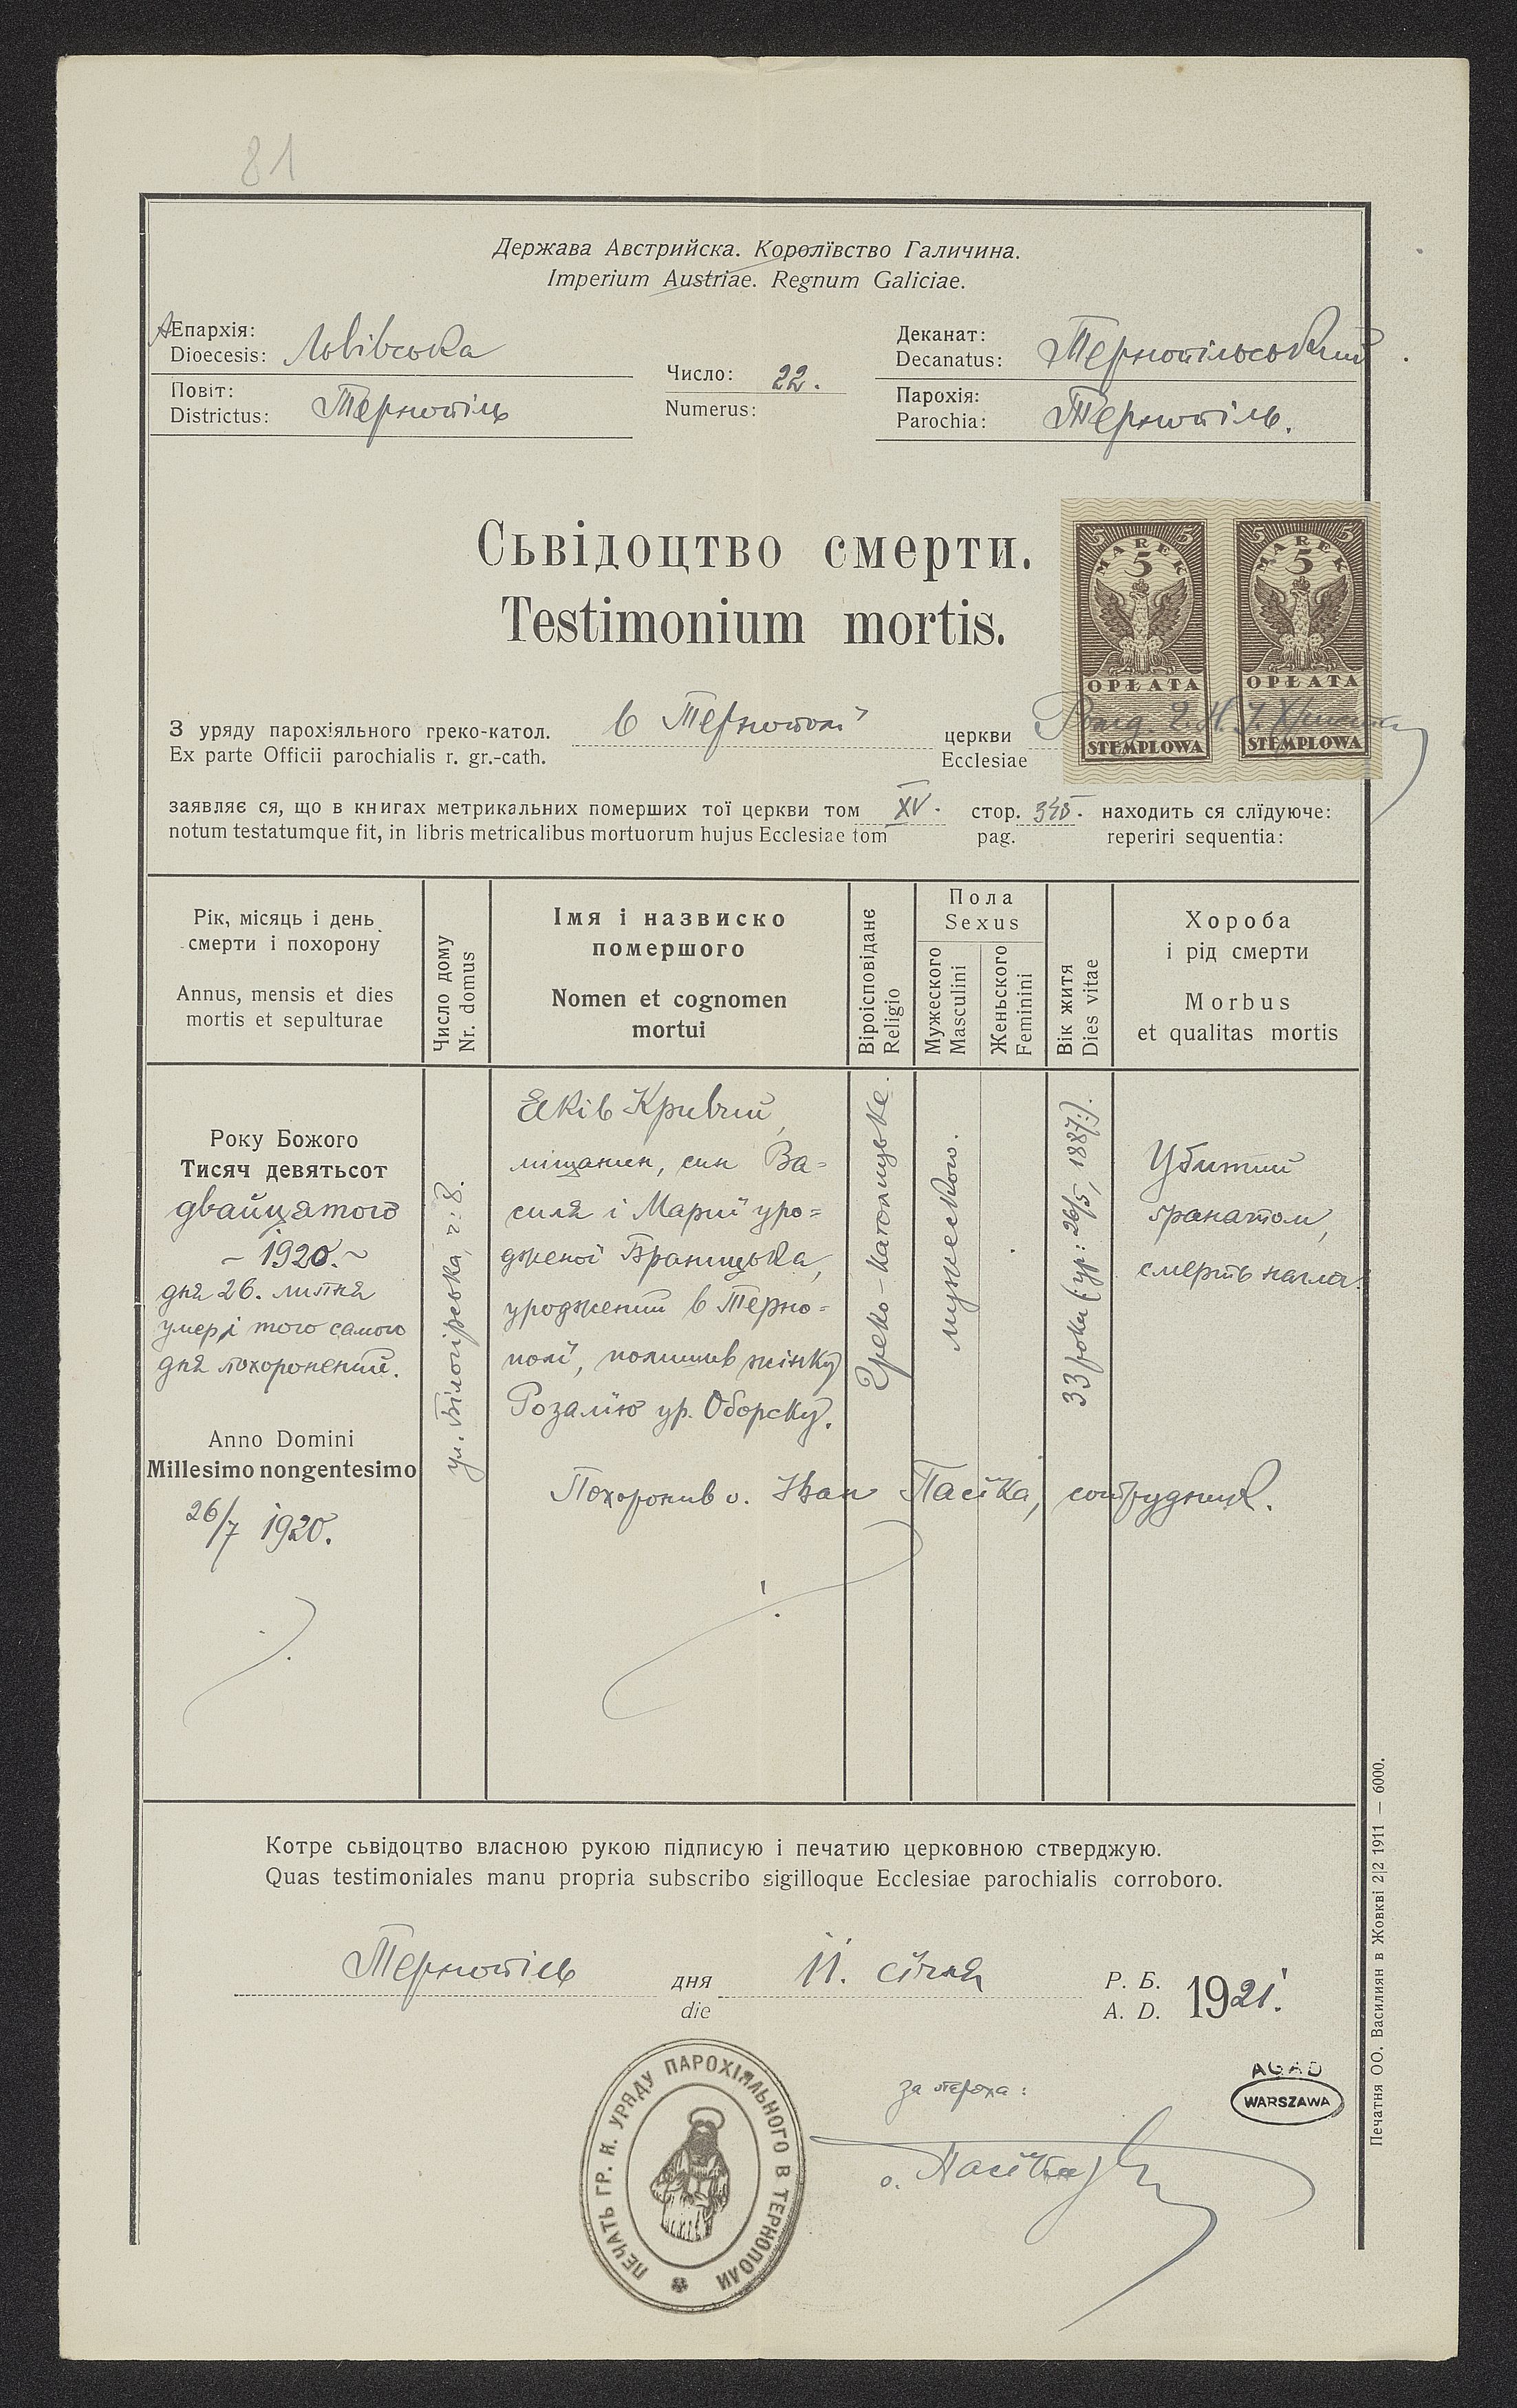 81
Держава Австрийска. Королївство Галичина.
Imperium Austriae. Regnum Galiciae.
АЕпархія:
Dioecesis: Львівська
Повіт:
Districtus: Тернопіль
Число: 22.
Numerus:
Деканат:
Decanatus: Тернопільський.
Парохія:
Parochia: Тернопіль.
Сьвідоцтво смерти.
Testimonium mortis.
5 5
MAREK
5
OPŁATA
STEMPLOWA
5 5
MAREK
5
OPŁATA
STEMPLOWA
З уряду парохіяльного греко-катол. в Тернополї церкви
Ex parte Officii parochialis r. gr.-cath. Ecclesiae
заявляє ся, що в книгах метрикальних померших тої церкви том XV. стор. 345. находить ся слїдуюче:
notum testatumque fit, in libris metricalibus mortuorum hujus Ecclesiae tom pag. reperiri sequentia:
Рік, місяць і день
смерти і похорону
Annus, mensis et dies
mortis et sepulturae
Число дому
Nr. domus
Імя і назвиско
помершого
Nomen et cognomen
mortui
Віроісповіданє
Religio
Пола
Sexus
Мужеского
Masculini
Женьского
Feminini
Вік житя
Dies vitae
Хороба
і рід смерти
Morbus
et qualitas mortis
Року Божого
Тисяч девятьсот
двайцятого
~ 1920. ~
дня 26. липня
умер і того самого
дня похоронений.
Anno Domini
Millesimo nongentesimo
26/7 1920.
ул. Білогірська, ч: 8.
Яків Кривий,
міщанин, син Ва=
силя і Марії уро=
дженої Браницька,
уроджений в Терно=
полї, полишив жінку
Розалїю ур. Оборску.
Греко-католицьке.
мужеского.
33 роки (:ур: 26/5, 1887:).
Убитий
гранатом,
смерть нагла.
Похоронив о. Іван Пасїка, сотрудник.
Котре сьвідоцтво власною рукою підписую і печатию церковною стверджую.
Quas testimoniales manu propria subscribo sigilloque Ecclesiae parochialis corroboro.
Тернопіль дня 11. сїчня Р. Б. 1921.
die A. D.
ПЕЧАТЬ ГР. К. УРЯДУ ПАРОХІЯЛЬНОГО В ТЕРНОПОЛИ
за пароха:
о. Пасїка
AGAD
WARSZAWA
Печатня ОО. Василиян в Жовкві 2|2 1911 — 6000.